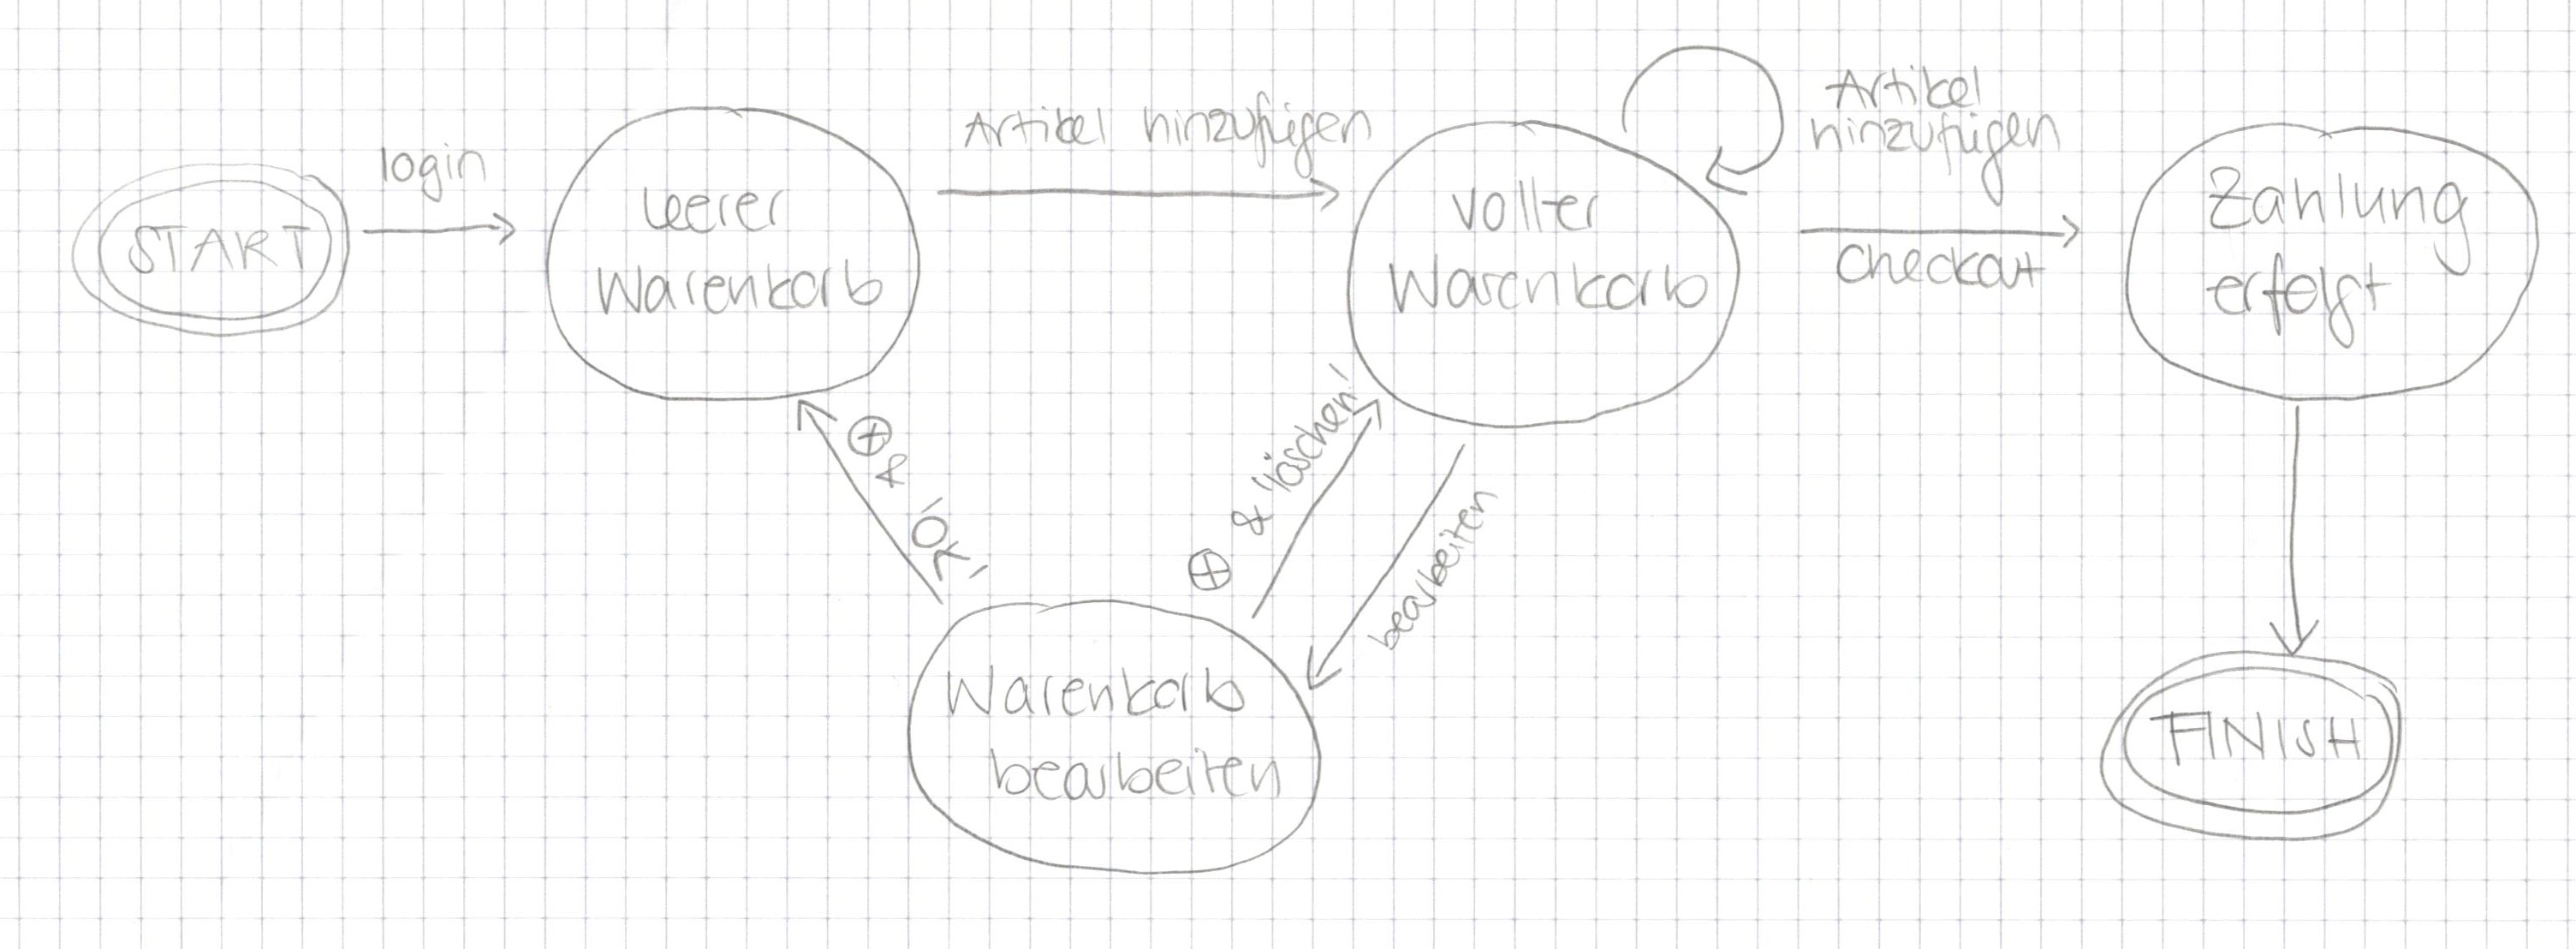 START
login
leerer
Warenkorb
Artikel hinzufügen
voller
Warenkorb
Artikel
hinzufügen
checkout
Zahlung
erfolgt
⊕ & 'OK'
⊕ & 'löschen'
bearbeiten
Warenkorb
bearbeiten
FINISH